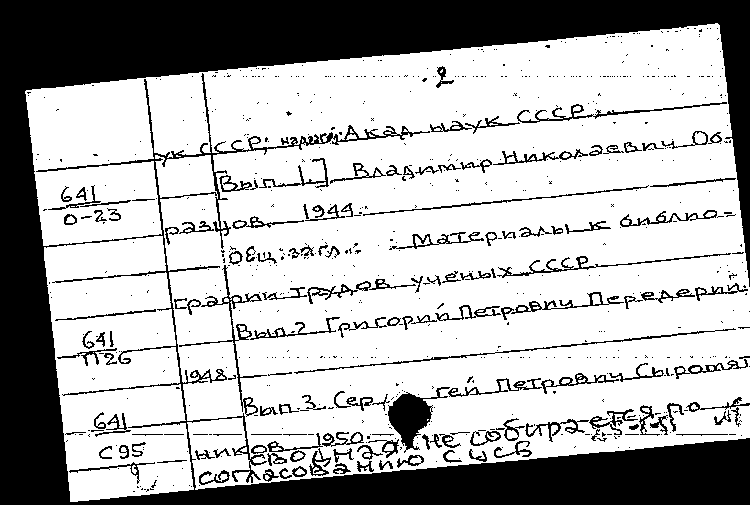 2
ук СССР; Акад. наук СССР.
[Вып. 1.] Владимир Николаевич Об-
641
О-23
разцов. 1944.
Общ. загл.: Материалы к библио-
графии трудов ученых СССР.
Вып. 2 Григорий Петрович Передерий.
641
П26
1948.
Вып. 3. Сергей Петрович Сыромят
641
С95
ников. 1950.
Сводная не собирается по
согласованию с ЦСБ